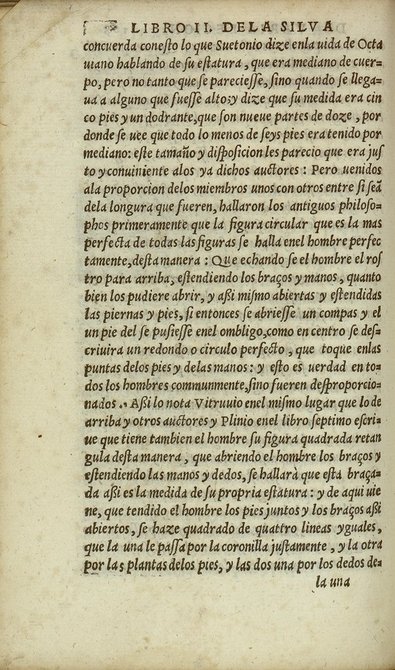 LIBRO II. DELA SILVA
concuerda conesto lo que Suetonio dize enla vida de Octa
uiano hablando de su estatura, que era mediano de cuer-
po, pero no tanto que se pareciesse, sino quando se llega-
ua a alguno que fuesse alto: y dize que su medida era cin
co pies y un dodrante, que son nueue partes de doze, por
donde se uee que todo lo menos de seys pies era tenido por
mediano: este tamaño y disposicion les parecio que era jus
to y conuiniente alos ya dichos auctores: Pero uenidos
ala proporcion delos miembros unos con otros entre si seã
dela longura que fueren, hallaron los antiguos philoso-
phos primeramente que la figura circular que es la mas
perfecta de todas las figuras se halla enel hombre perfec
tamente, desta manera: Que echando se el hombre el ros
tro para arriba, estendiendo los braços y manos, quanto
bien los pudiere abrir, y aßi mismo abiertas y estendidas
las piernas y pies, si entonces se abriesse un compas y el
un pie del se pusiesse enel ombligo, como en centro se des-
criuira un redondo o circulo perfecto, que toque enlas
puntas delos pies y delas manos: y esto es verdad en to-
dos los hombres communmente, sino fueren desproporcio-
nados. Aßi lo nota Vitruuio enel mismo lugar que lo de
arriba y otros auctores y Plinio enel libro septimo escri-
ue que tiene tambien el hombre su figura quadrada retan
gula desta manera, que abriendo el hombre los braços y
estendiendo las manos y dedos, se hallarà que esta braça-
da aßi es la medida de su propria estatura: y de aqui uie
ne, que tendido el hombre los pies juntos y los braços aßi
abiertos, se haze quadrado de quattro lineas yguales,
que la una le passa por la coronilla justamente, y la otra
por las plantas delos pies, y las dos una por los dedos de-
la una